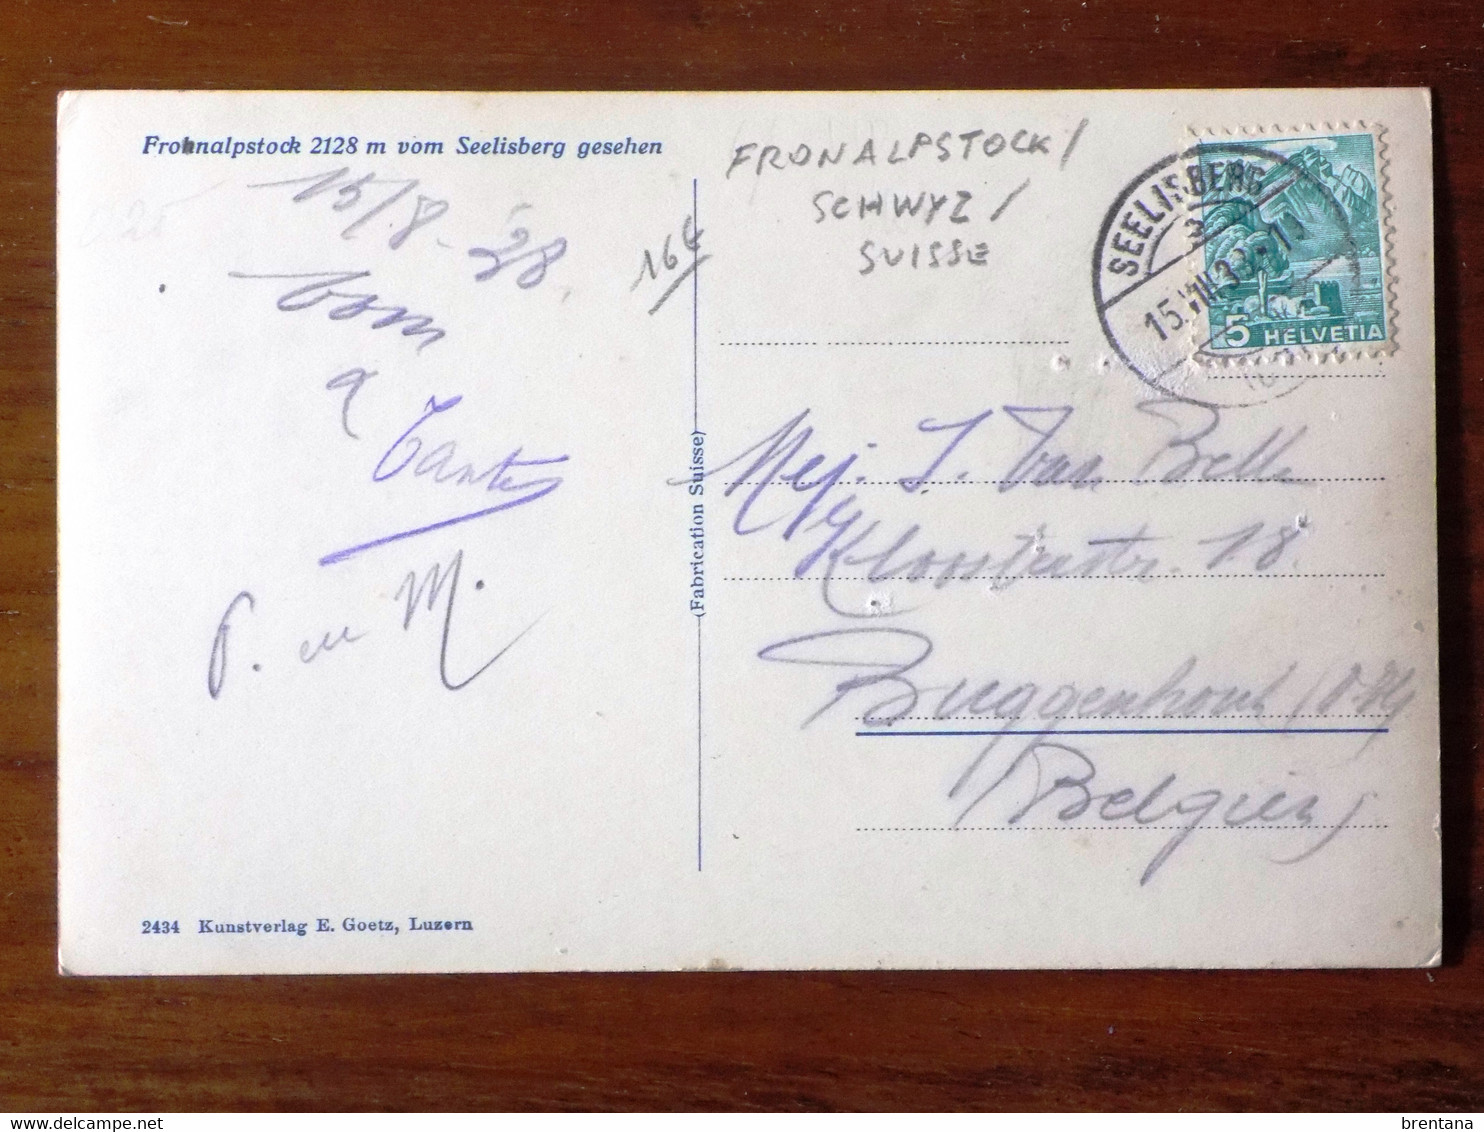 Frohnalpstock 2128 m vom Seelisberg gesehen
FRONALPSTOCK/
SCHWYZ/
SUISSE
SEELISBERG
15.VIII.38-10
5 HELVETIA
15/8-38.
16€
Tante
P. en M.
(Fabrication Suisse)
Mej. J. Van Belle
Kloosterstr. 18.
Buggenhout (O.Vl)
Belgien
2434 Kunstverlag E. Goetz, Luzern
brentana